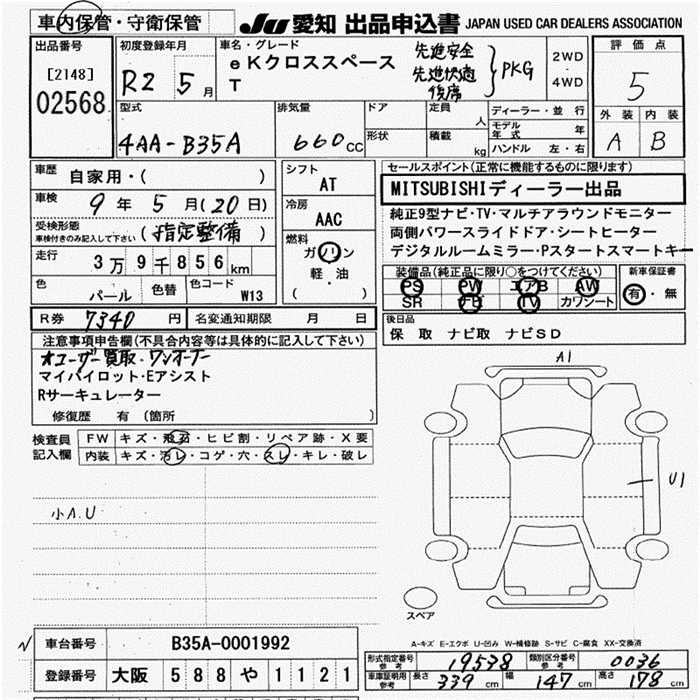 車内保管・守衛保管
JU 愛知 出品申込書 JAPAN USED CAR DEALERS ASSOCIATION
出品番号
[2148]
02568
初度登録年月
R2 5月
車名・グレード
eKクロススペース
T
先進安全
先進快適
PKG
2WD
4WD
評価点
5
外装 内装
A B
型式
4AA-B35A
排気量
660cc
ドア
形状
定員 人
積載 kg
ディーラー・並行
モデル年式 年
ハンドル 左・右
車歴
自家用・( )
車検
9年 5月(20日)
受検形態
車検付きのみ記入して下さい
(指定整備)
走行
3万9千856km
色
パール
色替
色コード
W13
シフト
AT
冷房
AAC
燃料
ガソリン
軽・油
( )
セールスポイント(正常に機能するものに限ります)
MITSUBISHIディーラー出品
純正9型ナビ・TV・マルチアラウンドモニター
両側パワースライドドア・シートヒーター
デジタルルームミラー・Pスタートスマートキー
装備品(純正品に限り○をつけてください)
PS PW エアB AW
SR TV カワシート
新車保証書
有・無
後日品
保 取 ナビ取 ナビSD
R券 7340円
名変通知期限 月 日
注意事項申告欄(不具合内容等は具体的に記入して下さい)
オユーザー買取・ワンオーナー
マイパイロット・Eアシスト
Rサーキュレーター
修復歴 有 (箇所 )
検査員
記入欄
FW キズ・飛石・ヒビ割・リペア跡・X要
内装 キズ・汚レ・コゲ・穴・スレ・キレ・破レ
小A.U
A1
U1
スペア
A-キズ E-エクボ U-凹み W-補修跡 S-サビ C-腐食 XX-交換済
車台番号 B35A-0001992
登録番号 大阪 588 や 1121
形式指定番号 参考 19538
類別区分番号 参考 0036
車庫証明用 参考
長さ 339cm
幅 147cm
高さ 178cm